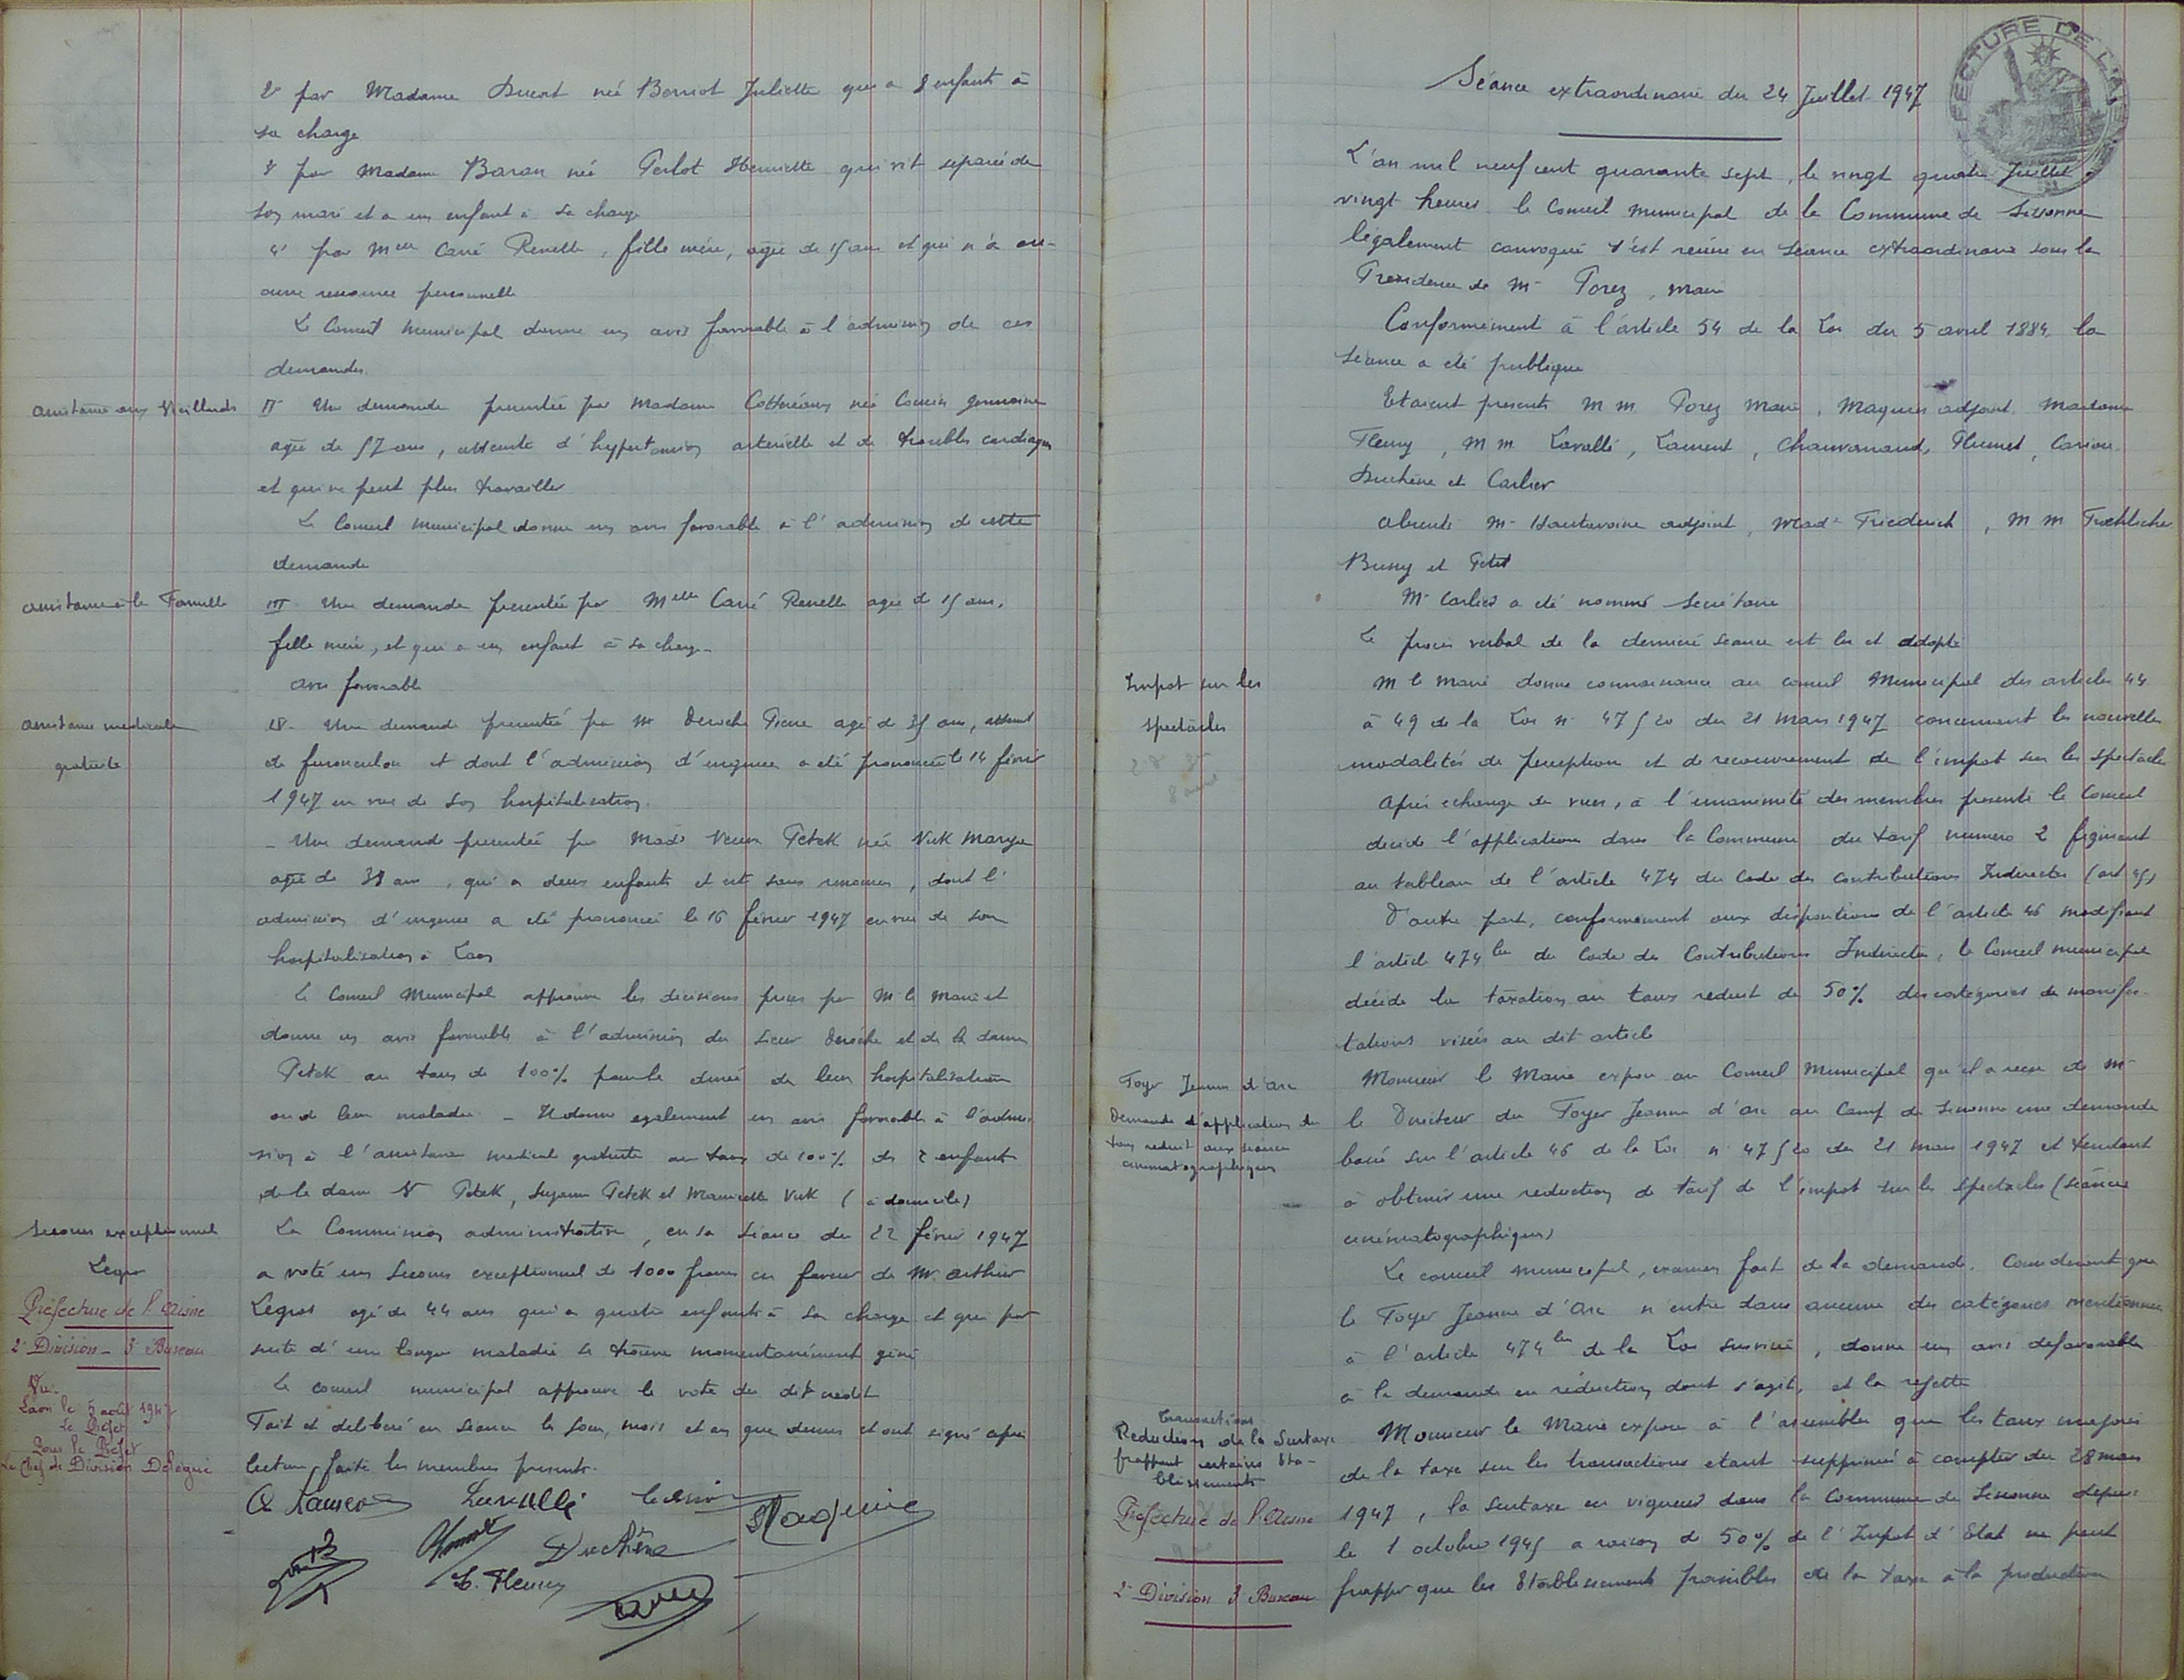 2° par Madame Ducrot née Berriot Juliette qui a 8 enfants à
sa charge
3° par Madame Baran née Perlot Henriette qui vit séparée de
son mari et a un enfant à sa charge
4° par Melle Carré Renelle, fille mère, agée de 15 ans et qui n'a au-
cune ressource personnelle
Le Conseil Municipal donne un avis favorable à l'admission de ces
demandes.
assistance aux Vieillards
II - Une demande présentée par Madame née Cousin Germaine
agée de 57 ans, atteinte d'hypertension artérielle et de troubles cardiaques
et qui ne peut plus travailler
Le Conseil municipal donne un avis favorable à l'admission de cette
demande
assistance à la Famille
III - Une demande présentée par Melle Carré Renelle agée de 15 ans,
fille mère, et qui a un enfant à sa charge -
avis favorable
assistance médicale
gratuite
IV - Une demande présentée par Mr Deroche Pierre agé de 35 ans, atteint
de furonculose et dont l'admission d'urgence a été prononcée le 14 février
1947 en vue de son hospitalisation.
- Une demande présentée par Made Veuve Petek née Vuk Marija
agée de 38 ans, qui a deux enfants et est sans ressources, dont l'
admission d'urgence a été prononcée le 16 février 1947 en vue de son
hospitalisation à Laon
Le Conseil Municipal approuve les décisions prises par M. le Maire et
donne un avis favorable à l'admission du sieur Deroche et de la dame
Petek au taux de 100% pour la durée de leur hospitalisation
ou de leur maladie - Il donne également un avis favorable à l'admis-
sion à l'assistance médicale gratuite au taux de 100% des 2 enfants
de la dame Vve Petek, Suzanne Petek et Marcelle Vuk (à domicile)
Secours exceptionnel
Legros
La Commission administrative, en sa séance du 22 février 1947
a voté un secours exceptionnel de 1000 francs en faveur de Mr. Arthur
Legros agé de 44 ans qui a quatre enfants à sa charge et qui par
suite d'une longue maladie se trouve momentanément géné
Le conseil municipal approuve le vote du dit crédit
Fait et délibéré en séance les jour, mois et an que dessus et ont signé après
lecture faite les membres présents.
Préfecture de l'Aisne
2e Division - 3e Bureau
Vu -
Laon le 5 août 1947
Le Préfet
Pour le Préfet
Le Chef de Division Délégué
Lavallé
Maquin
Duchêne
L. Fleury
PREFECTURE DE L'AISNE
Séance extraordinaire du 24 Juillet 1947
L'an mil neuf cent quarante sept, le vingt quatre Juillet à
vingt heures le Conseil Municipal de la Commune de Sissonne
légalement convoqué s'est réuni en séance extraordinaire sous la
Présidence de Mr Porez, Maire
Conformément à l'article 54 de la Loi du 5 avril 1884, la
séance a été publique
Etaient présents M M Porez Maire, Maquin adjoint, Madame
Fleury, M M Lavallé, Laurent, Chauvenaud, Plumet, Cariou
Duchêne et Carlier
absents Mr Hautavoine adjoint, Made Friederich, M M Froehlicher
Bussy et Petit
Mr Carlier a été nommé secrétaire
Le procès verbal de la dernière séance est lu et adopté
Impot sur les
spectacles
M le Maire donne connaissance au conseil Municipal des articles 44
à 49 de la Loi n° 47520 du 21 mars 1947 concernant les nouvelles
modalités de perception et de recouvrement de l'impot sur les spectacles
Après échange de vues, à l'unanimité des membres présents le Conseil
décide l'application dans la Commune du tarif numéro 2 figurant
au tableau de l'article 474 du Code des Contributions Indirectes (art 45)
D'autre part, conformément aux dispositions de l'article 46 modifiant
l'article 474 ter du Code des Contributions Indirectes, le Conseil municipal
décide la taxation au taux réduit de 50% des catégories de manifes-
tations visées au dit article
Foyer Jeanne d'Arc
Demande d'application du
taux réduit aux séances
cinématographiques
Monsieur le Maire expose au Conseil Municipal qu'il a reçu de Mr
le Directeur du Foyer Jeanne d'Arc au Camp de Sissonne une demande
basée sur l'article 46 de la Loi n° 47520 du 21 mars 1947 et tendant
à obtenir une réduction de tarif de l'impot sur les spectacles (séances
cinématographiques)
Le conseil municipal, examen fait de la demande, Considérant que
le Foyer Jeanne d'Arc n'entre dans aucune des catégories mentionnées
à l'article 474 ter de la Loi susvisée, donne un avis défavorable
à la demande en réduction dont s'agit, et la rejette
Transactions
Réduction de la Surtaxe
frappant certains Eta-
blissements
Monsieur le Maire expose à l'assemblée que les taux majorés
de la taxe sur les transactions étant supprimés à compter du 28 mars
1947, la surtaxe en vigueur dans la Commune de Sissonne depuis
le 1 octobre 1945 a raison de 50% de l'Impot d'Etat ne peut
frapper que les Etablissements passibles de la taxe à la production
Préfecture de l'Aisne
2e Division 3e Bureau